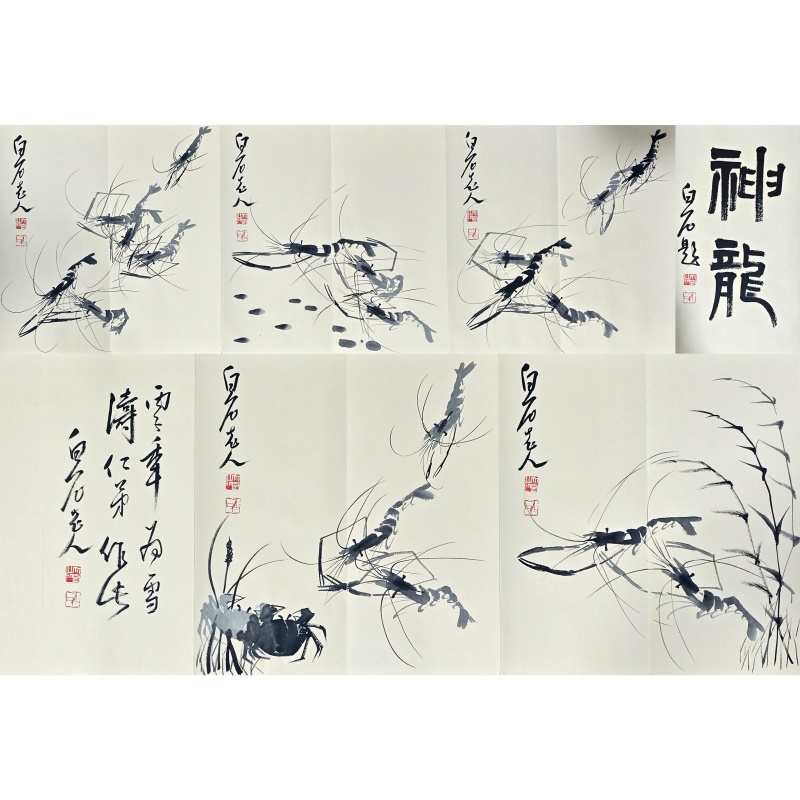 白石老人
白石老人
白石老人
神龍
白石題
為雪
濤仁弟作
白石老人
白石老人
白石老人